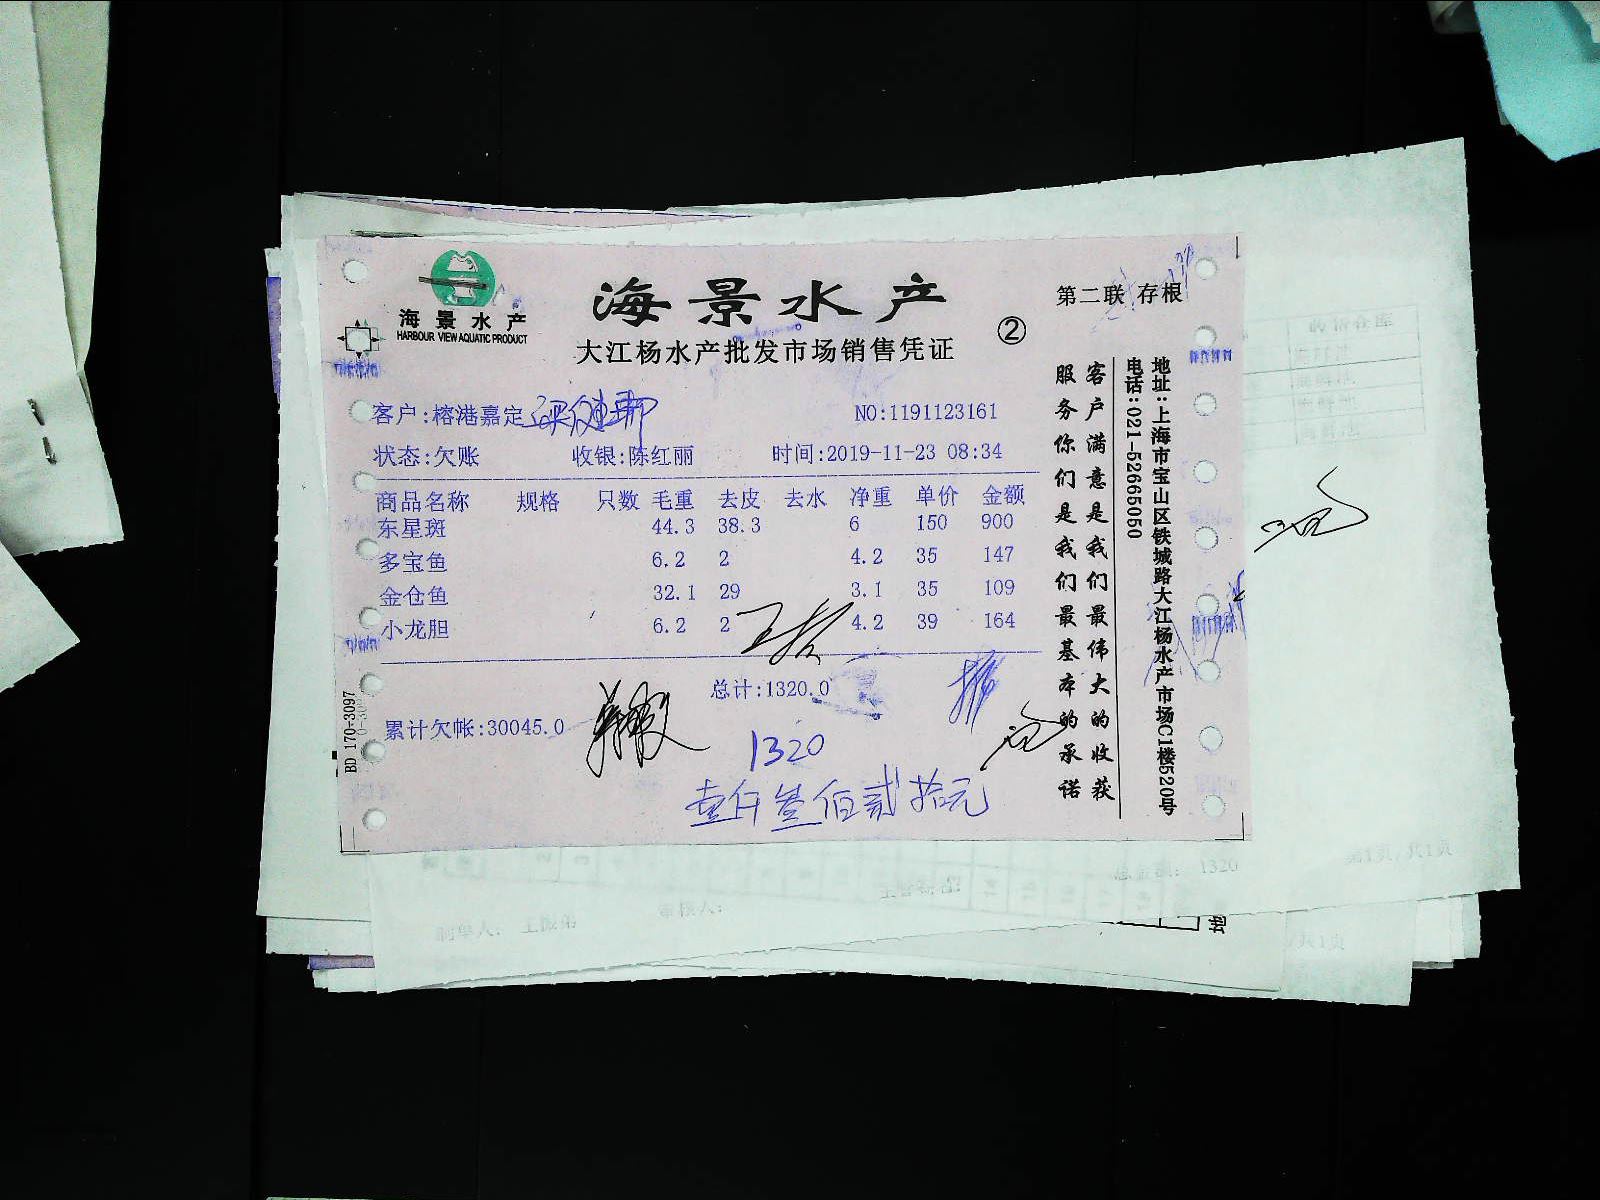 海景水产
HARBOUR VIEW AQUATIC PRODUCT
海景水产
大江杨水产批发市场销售凭证
②
第二联 存根
客户:榕港嘉定
NO:1191123161
状态:欠账 收银:陈红丽 时间:2019-11-23 08:34
商品名称 规格 只数 毛重 去皮 去水 净重 单价 金额
东星斑 44.3 38.3 6 150 900
多宝鱼 6.2 2 4.2 35 147
金仓鱼 32.1 29 3.1 35 109
小龙胆 6.2 2 4.2 39 164
总计:1320.0
累计欠帐:30045.0
1320
壹仟叁佰贰拾元
客户满意是我们最伟大的收获
服务你们是我们最基本的承诺
地址:上海市宝山区铁城路大江杨水产市场C1楼520号
电话:021-52665050
BD 170-3097
总金额: 1320
第1页/共1页
制单人: 王振弟
审核人:
/共1页